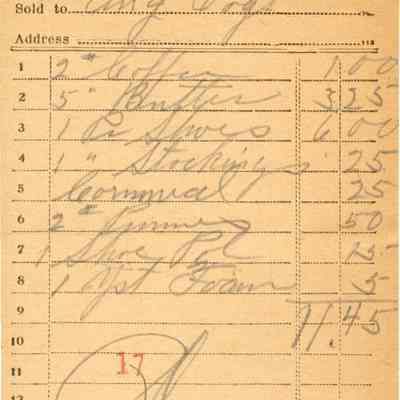 Sold to
Address
1 2# Coffee 1 00
2 5" Butter 3 25
3 1 Pr Shoes 6 00
4 1 " Stockings 25
5 Cornmeal 25
6 2# Prunes 50
7 1 Shoe Pol 15
8 1 Yst Foam 5
9 11.45
10
11 17
12